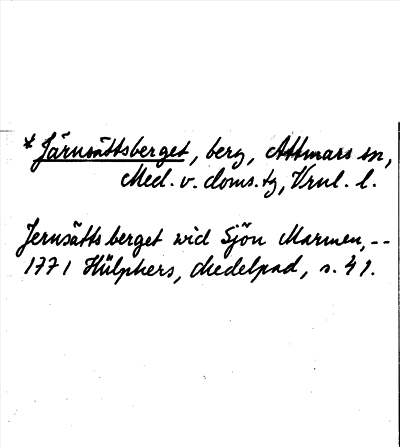 * Järnsättsberget, berg, Attmars sn,
Med. v. doms. tg, Vrnl. l.
Jernsätts berget wid Sjön Marmen, --
1771 Hülphers, Medelpad, s. 41.